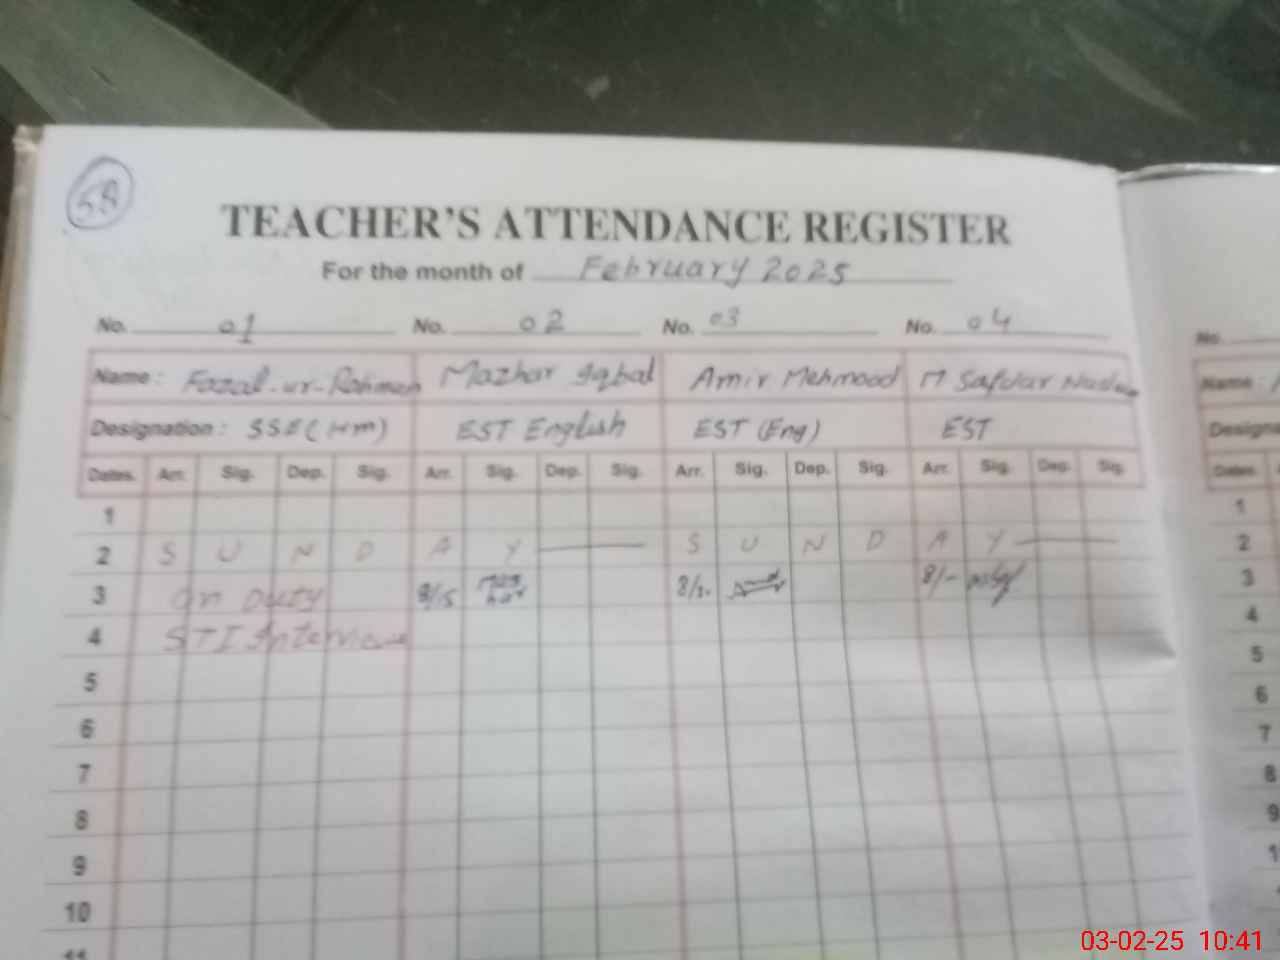 58
TEACHER'S ATTENDANCE REGISTER
For the month of February 2025
No. 01 No. 02 No. 03 No. 04
Name: Fazal-ur-Rahman Mazhar Iqbal Amir Mehmood M Safdar
Designation: SSE (HM) EST English EST (Eng) EST
Dates. Arr. Sig. Dep. Sig. Arr. Sig. Dep. Sig. Arr. Sig. Dep. Sig. Arr. Sig. Dep. Sig.
1
2 S U N D A Y S U N D A Y
3 On Duty 8/15 8/-
4 STI Interview
5
6
7
8
9
10
11
No.
Name:
Dates.
1
2
3
4
5
6
7
8
9
03-02-25 10:41